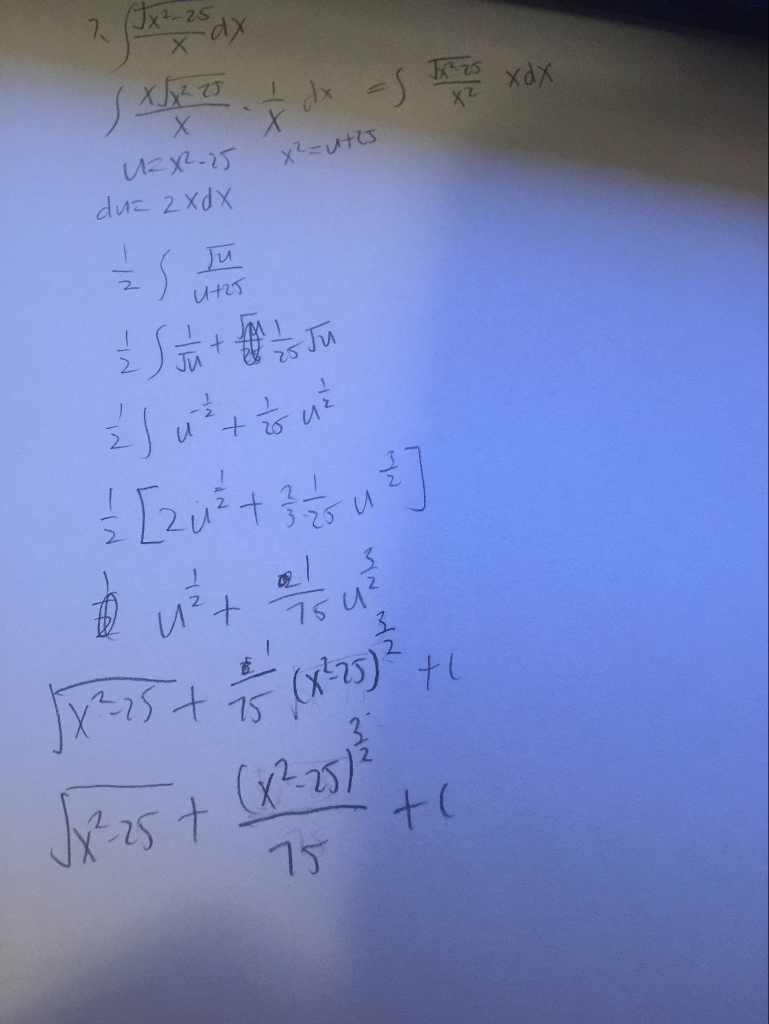 2. ∫ √(x²-25)/x dx
∫ x√(x²-25)/x · 1/x dx = ∫ √(x²-25)/x² xdx
u=x²-25 x²=u+25
du= 2xdx
1/2 ∫ √u/(u+25)
1/2 ∫ 1/√u + 1/25 √u
1/2 ∫ u^(-1/2) + 1/25 u^(1/2)
1/2 [2u^(1/2) + 2/3 · 1/25 u^(3/2)]
u^(1/2) + 1/75 u^(3/2)
√(x²-25) + 1/75 (x²-25)^(3/2) + C
√(x²-25) + (x²-25)^(3/2)/75 + C